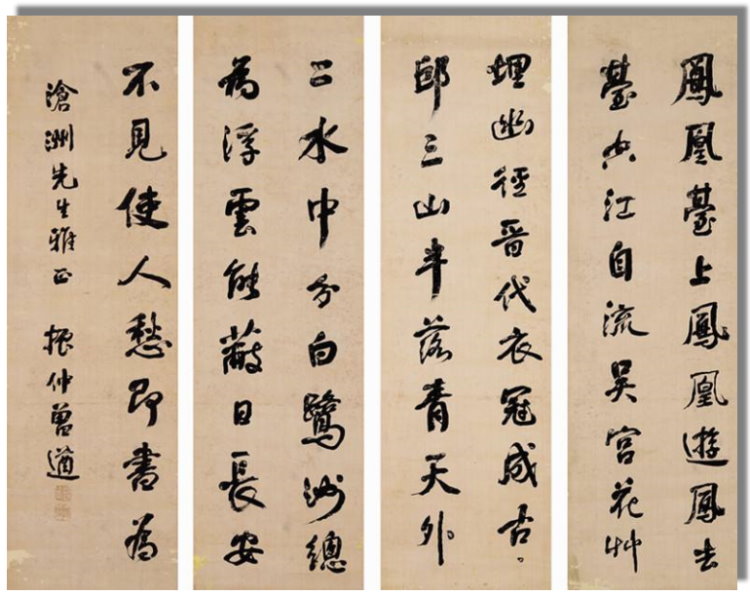 鳳凰臺上鳳凰遊鳳去
臺空江自流吳宮花艸
埋幽徑晉代衣冠成古
邱三山半落青天外
二水中分白鷺洲總
為浮雲能蔽日長安
不見使人愁即書為
滄洲先生雅正 振仲曾遒